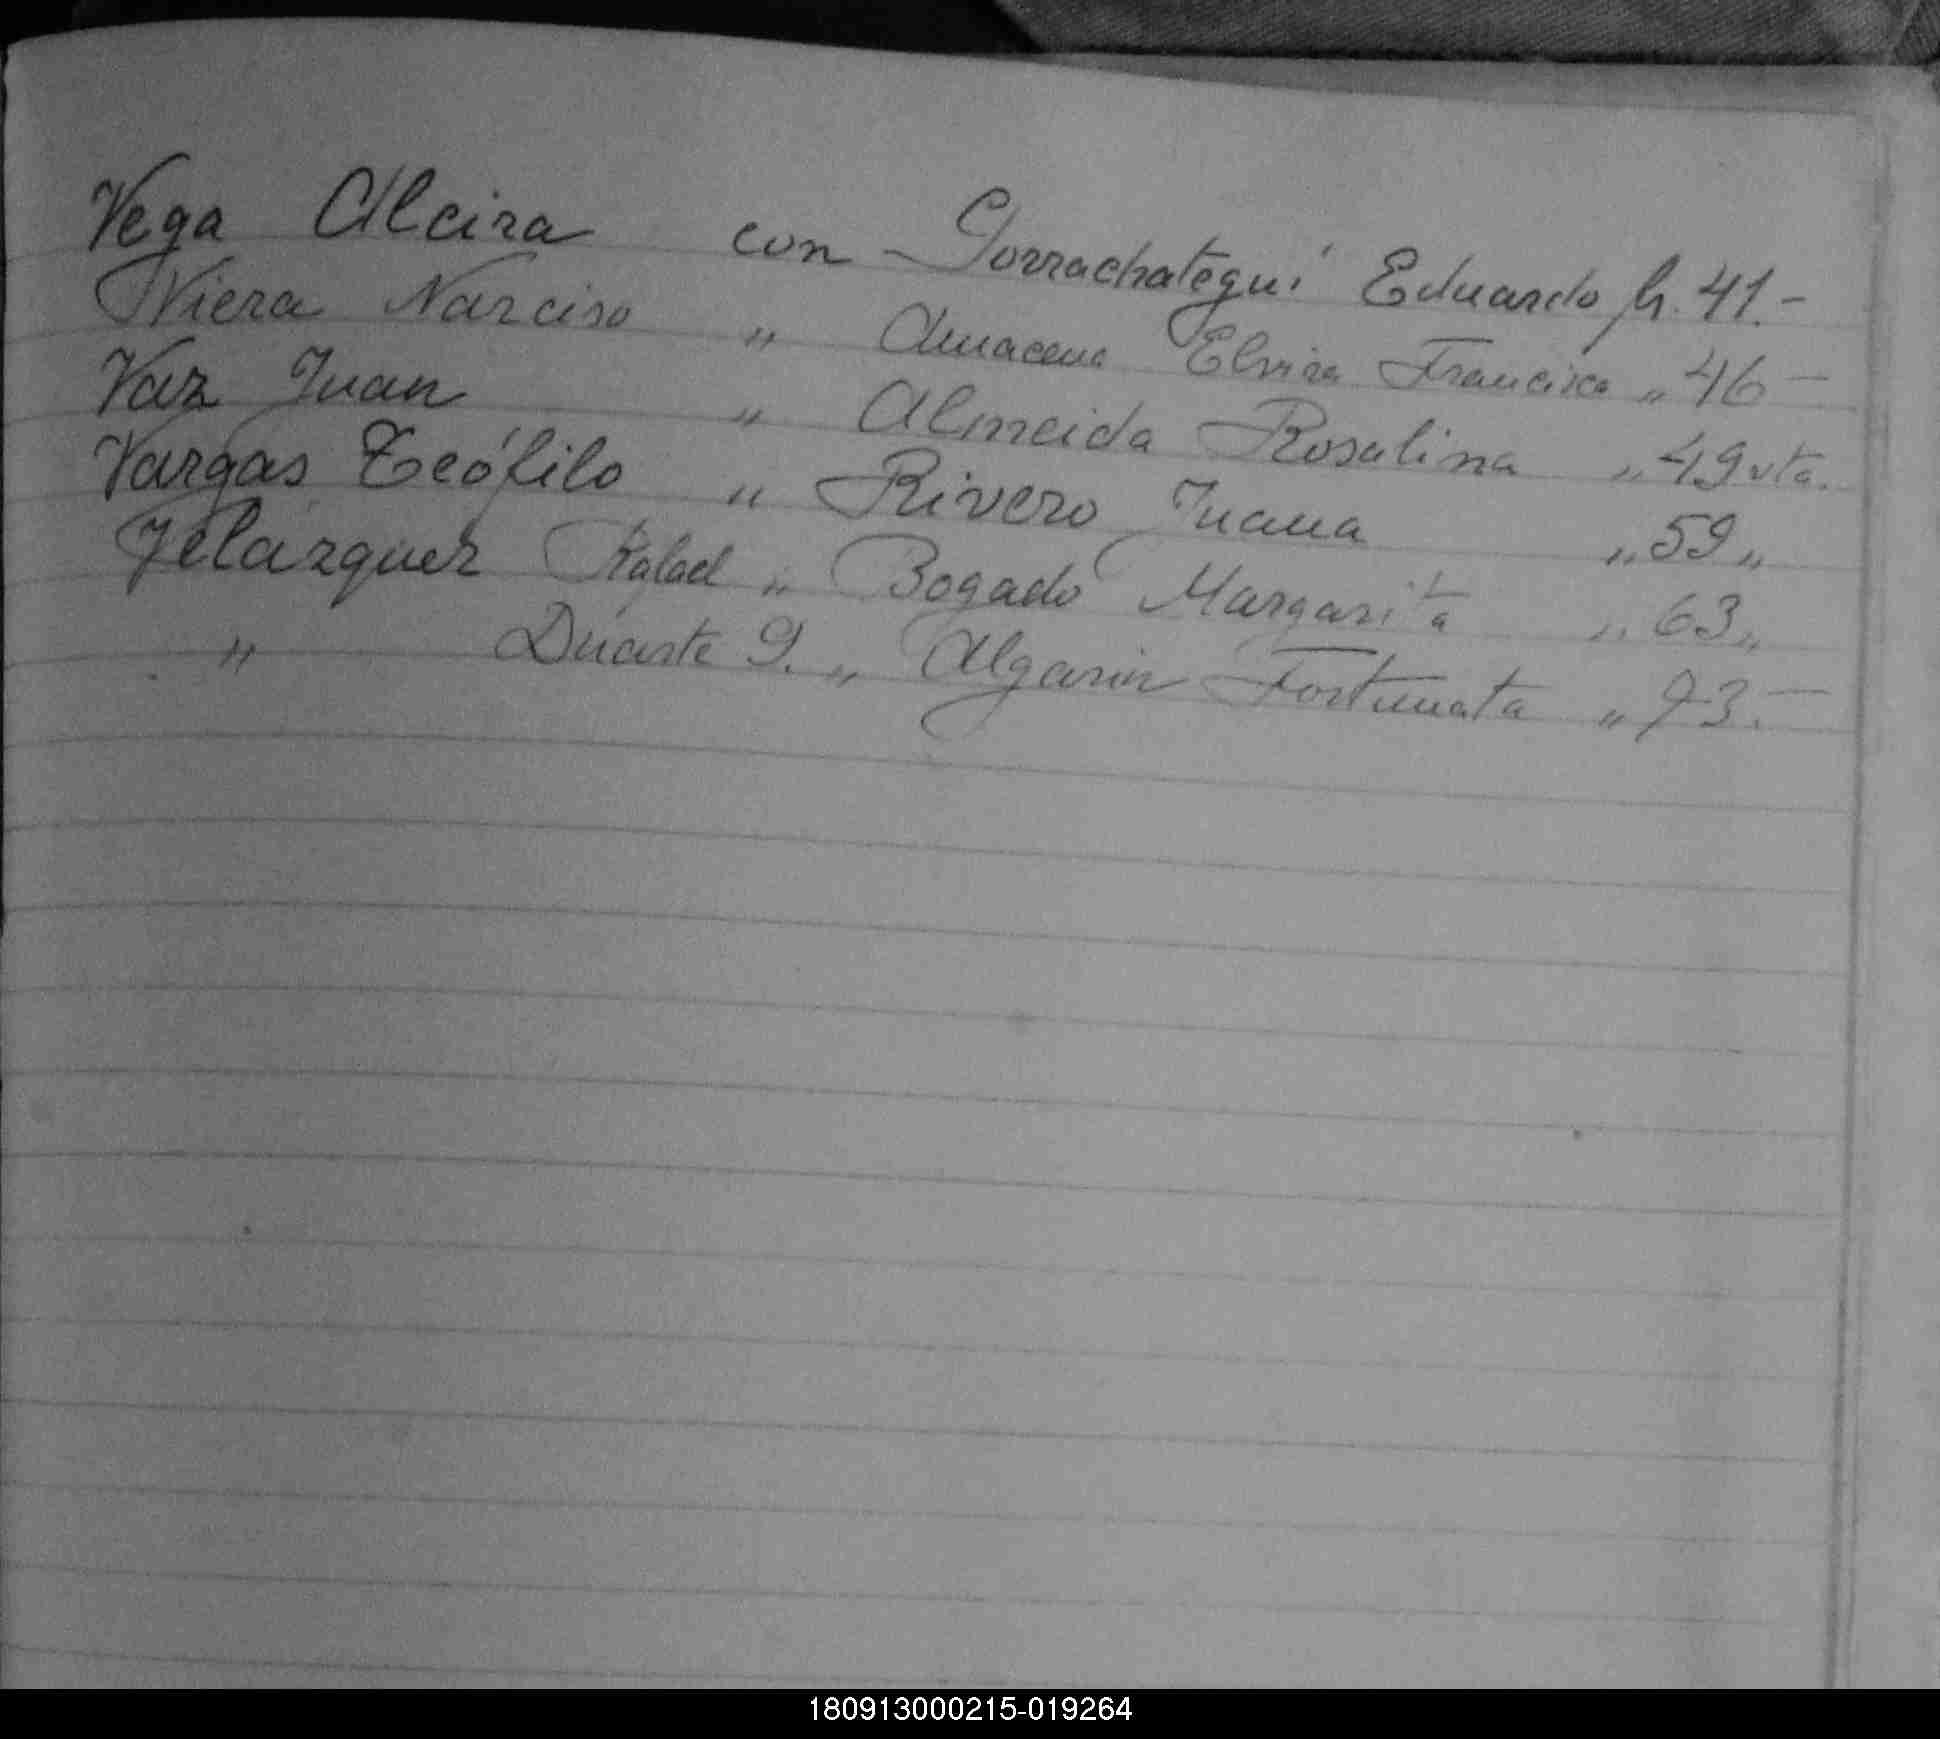 Vega Alcira con Gorrachategui Eduardo fs. 41.-
Viera Narciso " Amacena Elvira Francisca " 46 -
Vaz Juan " Almeida Rosalina " 49 vta.
Vargas Teófilo " Rivero Juana " 59 "
Velázquez Rafael " Bogado Margarita " 63 "
" Duarte G. " Algarin Fortunata " 73.-
180913000215-019264